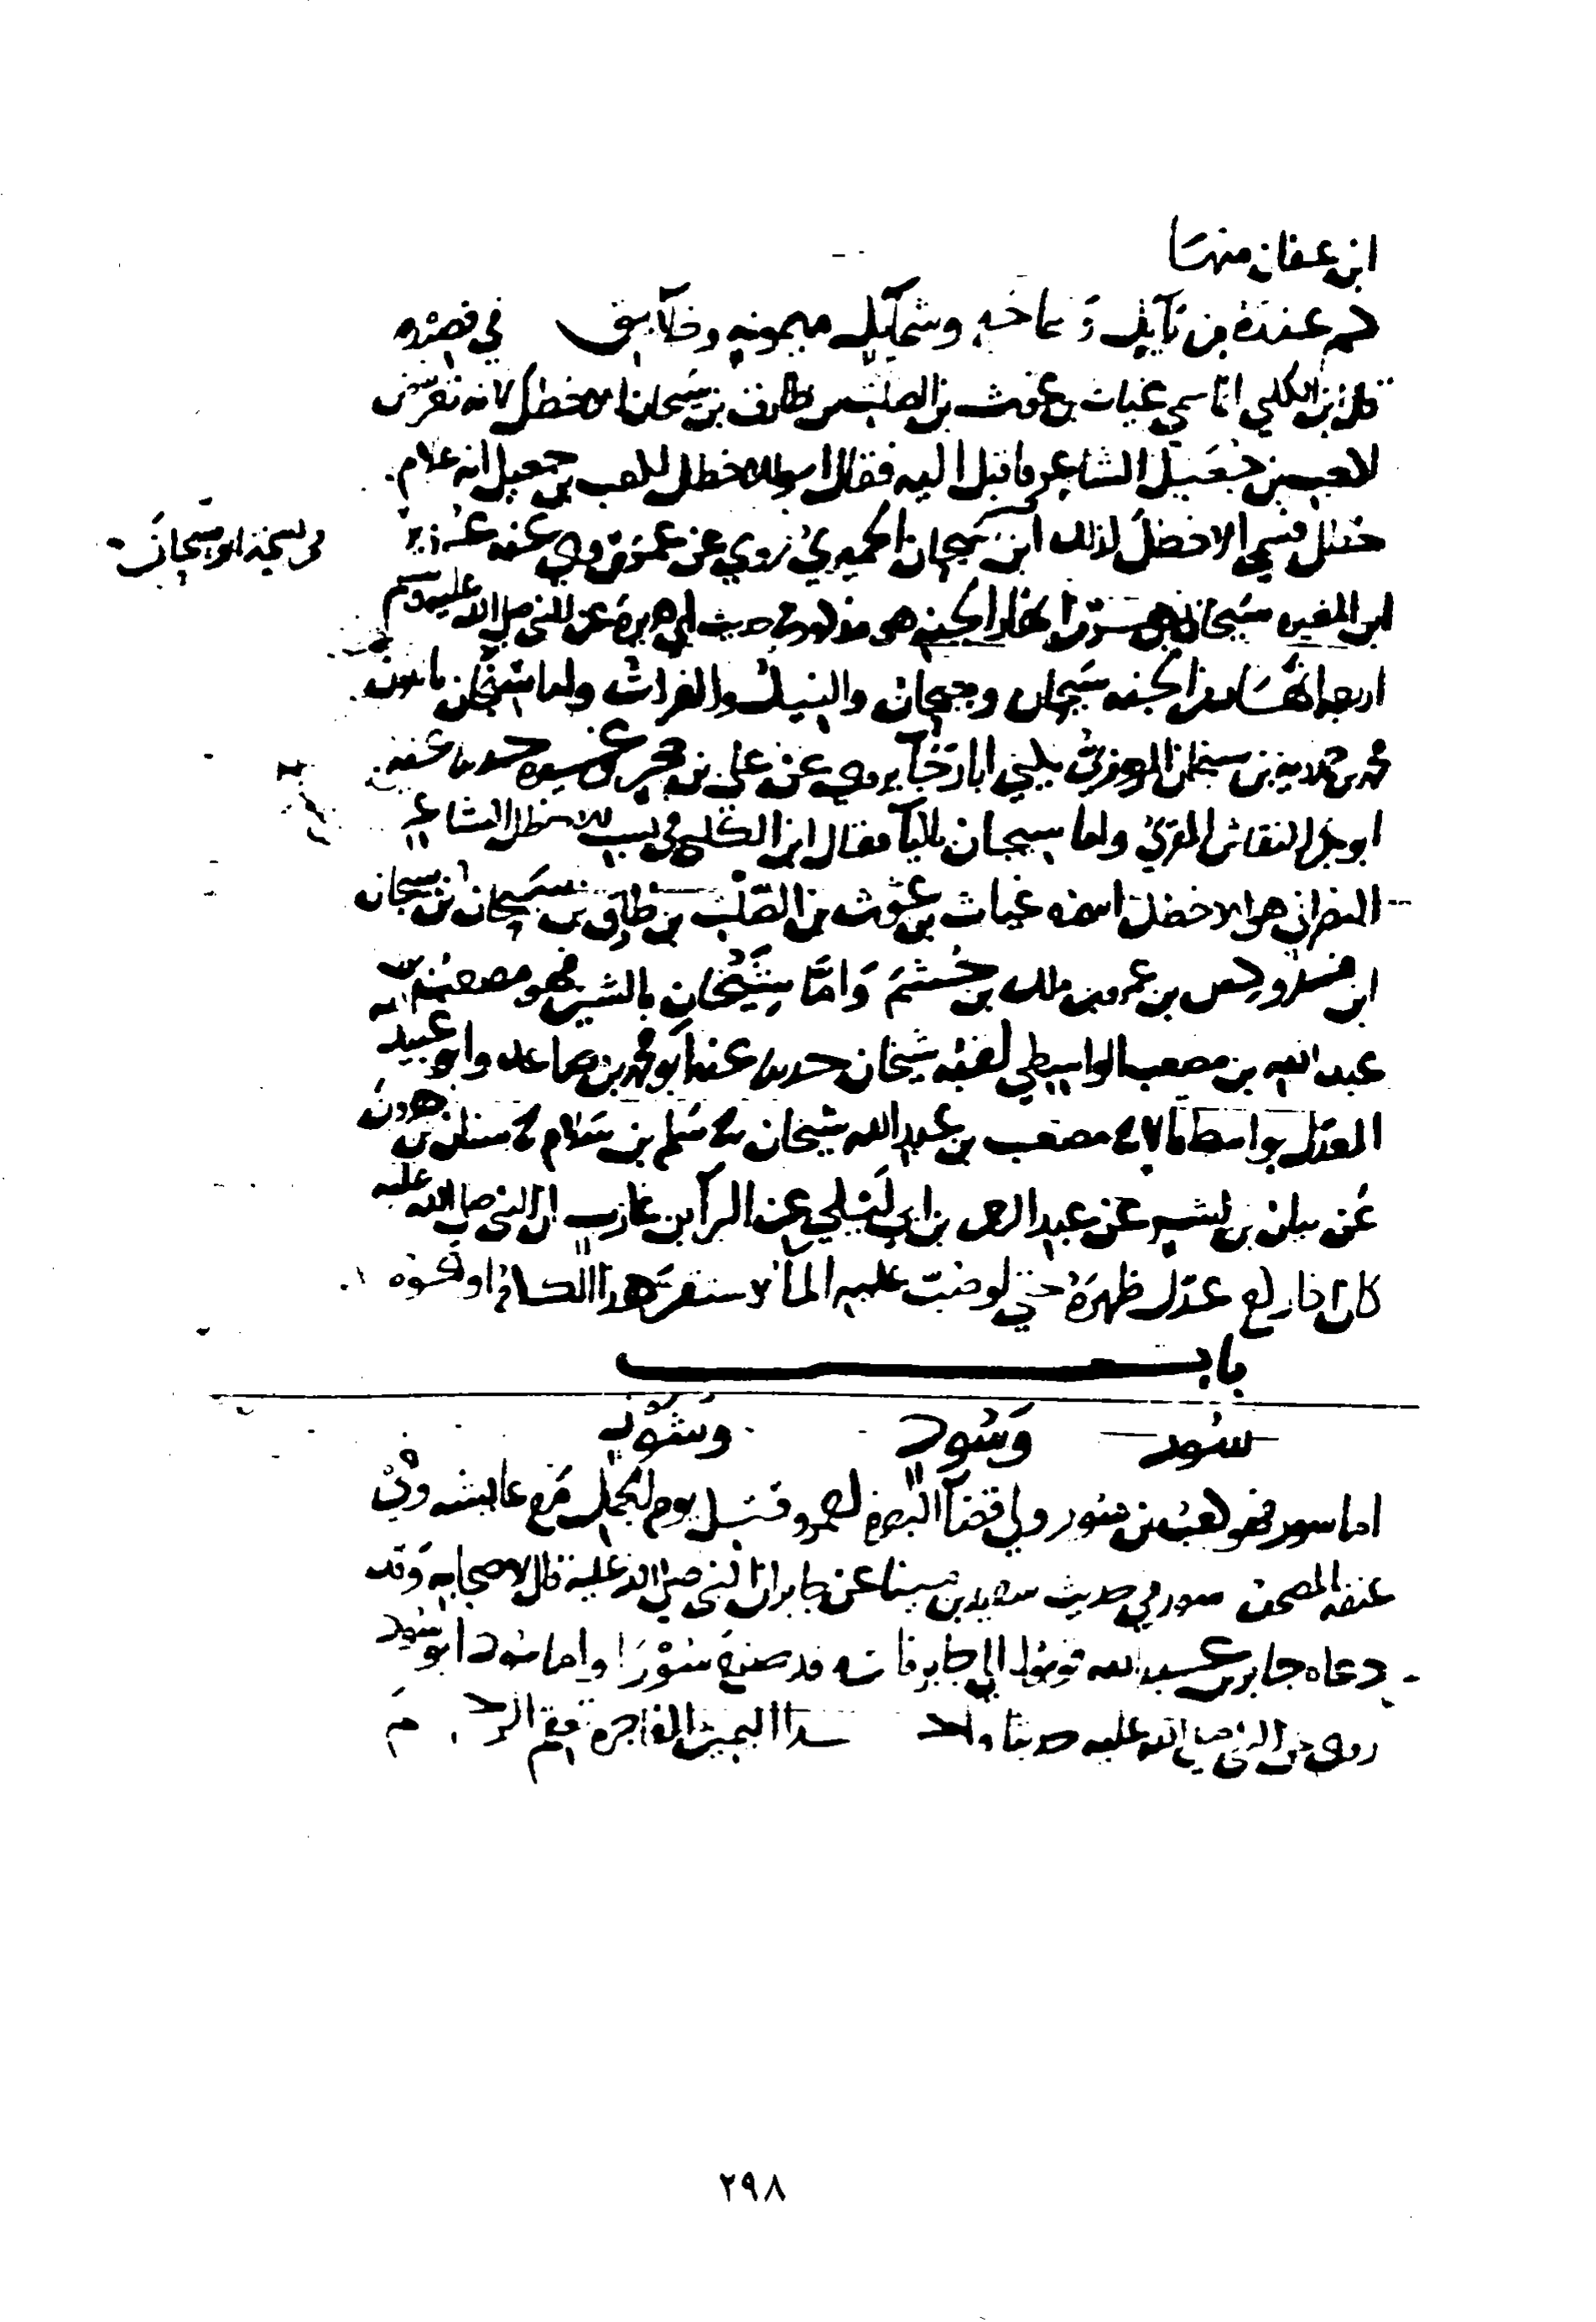 ابن عفان منها
كم عنده من نايل وسماحة وشمايل ميمونة وخلايق في قصيدة
قال ابن الكلبي انما سمي غياث بن غوث بن الصلت بن طارق بن سيحان الاخطل لانه تعرض
لكعب بن جعيل الشاعر فاقبل اليه فقال الاخطل لكعب بن جعيل انه غلام
خطل فسمي الاخطل لذلك ابن سيحان الحميري روي عن عنه
ابن المغيرة سيحان نهر من انهار الجنة هو في حديث ابي هريرة عن النبي صلى الله عليه وسلم
اربعة انهار من الجنة سيحان وجيحان والنيل والفرات واما بالنون
محمد بن بن المروزي يكنى ابا رجا يروي عن علي بن حجر وغيره حدثنا عنه
ابو بكر النقاش المقرئ واما سيجان بالياء فقال ابن الكلبي في نسب الاخطل الشاعر
النصراني هو الاخطل اسمه غياث بن غوث بن الصلت بن طارق بن سيحان بن سيحان
ابن فدوكس بن عمرو بن ملك بن جشم واما شيخان بالشين فهو مصعب بن
عبد الله بن مصعب الواسطي لقبه شيخان حدثنا عنه ابو محمد بن صاعد وابو عبيد
المعدل بواسط قالا نا مصعب بن عبد الله شيخان نا سلم بن سلام نا سنان بن هرون
عن بيان بن بشر عن عبد الرحمن بن ابي ليلى عن البرا بن عازب ان النبي صلى الله عليه
كان اذا ركع عدل ظهره حتى لو صبت عليه الماء لاستقر هذا الكلام او نحوه
باب
سور وسود وشوذب
اما سور فهو كعب بن سور ولي قضا البصرة لعمر وقتل يوم الجمل مع عايشة وفي
عنقه المصحف سور في حديث سعيد بن مينا عن جابر ان النبي صلى الله عليه قال لاصحابه وقد
دعاه جابر بن عبد الله قوموا الى جابر فانه قد صنع سورا واما سود ابو سود
روى عن النبي صلى الله عليه حديثا واحدا اليمين الفاجرة تعقم الرحم
في نسخة ابو سيحان
٢٩٨